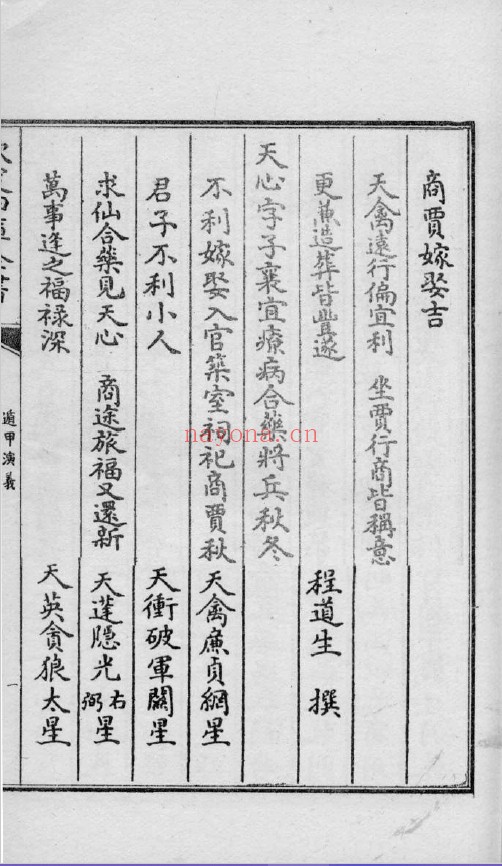 商賈嫁娶吉
天禽遠行偏宜利　坐賈行商皆稱意
更兼造葬皆豐遂　程道生　撰
天心字子襄宜療病合藥將兵秋冬
不利嫁娶入官築室祠祀商賈秋　天禽廉貞網星
君子不利小人　天衝破軍關星
求仙合藥見天心　商途旅福又還新　天蓬隱光右弼星
萬事逢之福禄深　天英貪狼太星
遁甲演義
一
nayona.cn